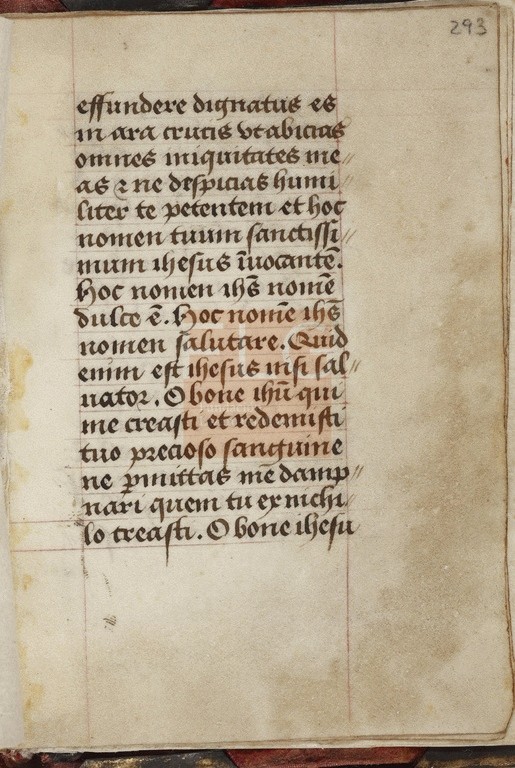 293
effundere dignatus es
in ara crucis vt abicias
omnes iniquitates me//
as ⁊ ne despicias humi/
liter te petentem et hoc
nomen tuum sanctissi//
mum ihesus īuocantē.
Hoc nomen ihs̄ nomē
dulce ē. Hoc nomē ihs̄
nomen salutare. Quid
enim est ihesus nisi sal//
uator. O bone ihū qui
me creasti et redemisti
tuo precioso sanguine
ne ꝑmittas mē damp//
nari quem tu ex nichi/
lo creasti. O bone ihesu